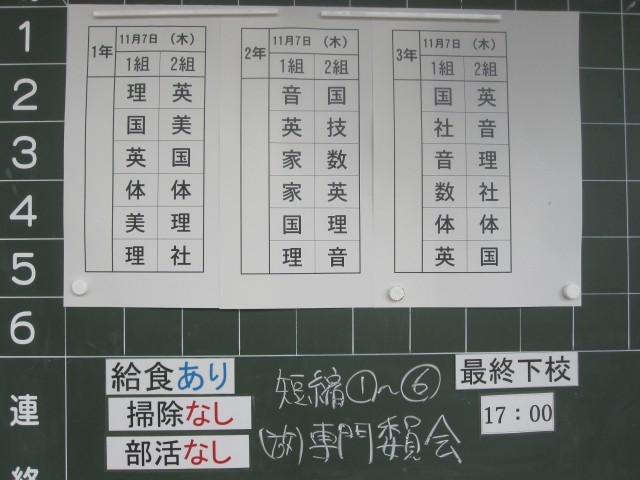 1
2
3
4
5
6
連
1年 11月7日 (木)
1組 2組
理 英
国 美
英 国
体 体
美 理
理 社
2年 11月7日 (木)
1組 2組
音 国
英 技
家 数
家 英
国 理
理 音
3年 11月7日 (木)
1組 2組
国 英
社 音
音 理
数 社
体 体
英 国
給食あり
掃除なし
部活なし
短縮①〜⑥
専門委員会
最終下校
17：00